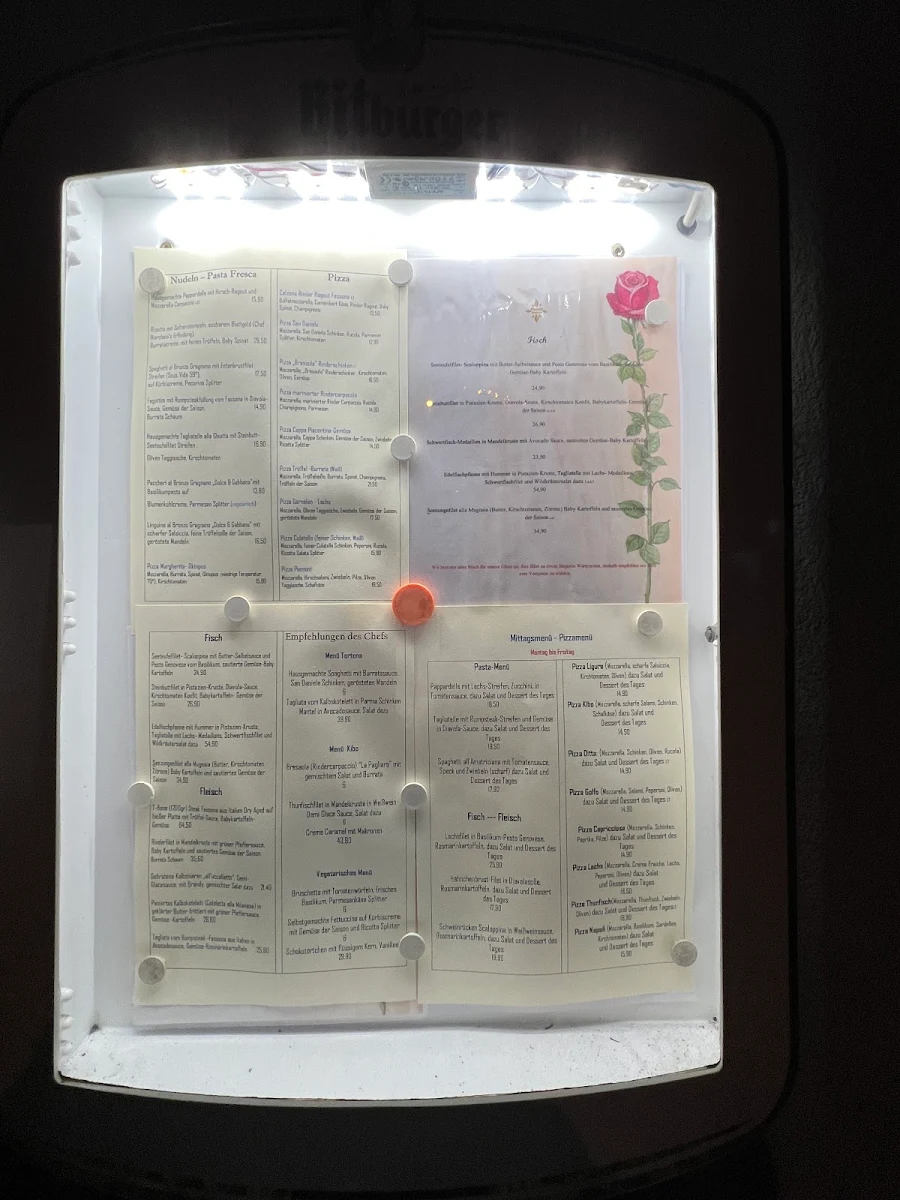 Bitburger
Nudeln – Pasta Fresca
Hausgemachte Pepperdelle mit Hirsch-Ragout und
Mozzarella
15,90
Baby Spinat
Spaghetti al Bronzo Gragnano mit
17,50
auf Kürbiscreme, Pecorino Splitter
Sauce, Gemüse der Saison,
14,90
Burrata Schaum
Hausgemachte Tagliatelle alla Ghiotta mit Steinbutt-
Seeteufelfilet Streifen
Oliven Taggiasche, Kirschtomaten
Paccheri al Bronzo Gragnano „Dolce & Gabbana" mit
Basilikumpesto auf
13,80
Blumenkohlcreme, Parmesan Splitter
Linguine al Bronzo Gragnano „Dolce & Gabbana" mit
scharfer Salsiccia, feine Trüffelsoße der Saison,
geröstete Mandeln
16,50
Pizza Margherita- Oktopus
Mozzarella, Burrata, Spinat, Oktopus (niedrige Temperatur
Kirschtomaten
Pizza
Calzone Rinder Ragout Fassona
Pizza San Daniele
Mozzarella, San Daniele Schinken, Rucola, Parmesan
Splitter, Kirschtomaten
Pizza „Bresaola" Rinderschinken
Mozzarella, „Bresaola" Rinderschinken, Kirschtomaten,
Oliven, Gemüse
Pizza marinierter Rindercarpaccio
Mozzarella, marinierter Rinder Carpaccio, Rucola,
Champignons, Parmesan
14,90
Pizza Coppa Piacentina-Gemüse
Mozzarella, Coppa Schinken, Gemüse der Saison, Zwiebeln
Ricotta Splitter
Pizza Trüffel-Burrata (Weiß)
Mozzarella, Trüffelsoße, Burrata, Spinat, Champignons,
Trüffeln der Saison
21,50
Pizza Garnelen - Lachs
Mozzarella, Oliven Taggiasche, Zwiebeln, Gemüse der Saison,
geröstete Mandeln
17,50
Pizza Culatello (feiner Schinken, Weiß)
Mozzarella, feiner Culatello Schinken, Peperoni, Rucola,
Ricotta Salata Splitter
Pizza Piemont
Mozzarella, Hirschsalami, Zwiebeln, Pilze, Oliven
Taggiasche, Schafskäse
Fisch
Seeteufelfilet- Scaloppina mit Butter-Salbeisauce und Pesto Genovese vom Basilikum
Gemüse-Baby Kartoffeln
24,90
Steinbuttfilet in Pistazien-Kruste, Diavola-Sauce, Kirschtomaten Konfit, Babykartoffeln- Gemüse
der Saison
26,90
Schwertfisch-Medaillon in Mandelkruste mit Avocado Sauce, sautiertes Gemüse-Baby Kartoffeln
23,50
Edelfischpfanne mit Hummer in Pistazien-Kruste, Tagliatelle mit Lachs- Medaillons
Schwertfischfilet und Wildkräutersalat dazu
54,90
Seezungefilet alla Mugnaia (Butter, Kirschtomaten, Zitrone) Baby Kartoffeln und sautiertes Gemüse
der Saison
34,90
zum Vorspeise zu wählen.
Fisch
Seeteufelfilet- Scaloppina mit Butter-Salbeisauce und
Pesto Genovese vom Basilikum, sautierte Gemüse-Baby
Kartoffeln 24,90
Steinbuttfilet in Pistazien-Kruste, Diavola-Sauce,
Kirschtomaten Konfit, Babykartoffeln- Gemüse der
Saison 26,90
Edelfischpfanne mit Hummer in Pistazien-Kruste,
Tagliatelle mit Lachs- Medaillons, Schwertfischfilet und
Wildkräutersalat dazu 54,90
Seezungefilet alla Mugnaia (Butter, Kirschtomaten,
Zitrone) Baby Kartoffeln und sautiertes Gemüse der
Saison 34,90
Fleisch
T-Bone (1200gr) Steak Fassona aus Italien Dry Aged auf
heißer Platte mit Trüffel-Sauce, Babykartoffeln-
Gemüse 64,50
Rinderfilet in Mandelkruste mit grüner Pfeffersauce,
Baby Kartoffeln und sautiertes Gemüse der Saison
Gebratene Kalbsnieren
mit Brandy, gemischter Salat dazu 21,40
Paniertes Kalbskotelett (Cotoletta alla Milanese) in
geklärter Butter frittiert mit grüner Pfeffersauce,
Gemüse-Kartoffeln
Tagliata vom Rumpsteak -Fassona aus Italien in
Avocadosauce, Gemüse-Rosmarinkartoffeln 25,80
Empfehlungen des Chefs
Menü Tortona
Hausgemachte Spaghetti mit Burratasauce,
San Daniele Schinken, gerösteten Mandeln
&
Tagliata vom Kalbskotelett in Parma Schinken
Mantel in Avocadosauce, Salat dazu
39,80
Menü Kibo
Bresaola (Rindercarpaccio) "La Pagliara" mit
gemischtem Salat und Burrata
&
Thunfischfilet in Mandelkruste in Weißwein
Demi Glace Sauce, Salat dazu
&
Creme Caramel mit Makronen
43,80
Vegetarisches Menü
Bruschetta mit Tomatenwürfeln, frisches
Basilikum, Parmesankäse Splitter
&
Selbstgemachte Fettuccine auf Kürbiscreme
mit Gemüse der Saison und Ricotta Splitter
&
Schokotörtchen mit flüssigem Kern, Vanilleeis
28,80
Mittagsmenü - Pizzamenü
Montag bis Freitag
Pasta-Menü
Pappardelle mit Lachs-Streifen, Zucchini, in
Tomatensauce, dazu Salat und Dessert des Tages
18,50
Tagliatelle mit Rumpsteak-Streifen und Gemüse
in Diavola-Sauce, dazu Salat und Dessert des
Tages
18,50
Spaghetti all Amatriciana mit Tomatensauce,
Speck und Zwiebeln (scharf) dazu Salat und
Dessert des Tages
17,80
Fisch --- Fleisch
Lachsfilet in Basilikum-Pesto Genovese,
Rosmarinkartoffeln, dazu Salat und Dessert des
Tages
Hähnchenbrust-Filet in Diavolasoße,
Rosmarinkartoffeln, dazu Salat und Dessert
des Tages
17,90
Schweinrücken Scaloppina in Weißweinsauce,
Rosmarinkartoffeln, dazu Salat und Dessert des
Tages
Pizza Ligure (Mozzarella, scharfe Salsiccia,
Kirschtomaten, Oliven) dazu Salat und
Dessert des Tages
14,90
Pizza Kibo (Mozzarella, scharfe Salami, Schinken,
Schafkäse) dazu Salat und
Dessert des Tages
14,90
Pizza Ditta (Mozzarella, Schinken, Oliven, Rucola)
dazu Salat und Dessert des Tages
14,90
Pizza Golfo (Mozzarella, Salami, Peperoni, Oliven)
dazu Salat und Dessert des Tages
14,90
Pizza Capricciosa (Mozzarella, Schinken,
Paprika, Pilze) dazu Salat und Dessert des
Tages
14,90
Pizza Lachs (Mozzarella, Creme Fraiche, Lachs,
Peperoni, Oliven) dazu Salat
und Dessert des Tages
Pizza Thunfisch(Mozzarella, Thunfisch, Zwiebeln,
Oliven) dazu Salat und Dessert des Tages
Pizza Napoli (Mozzarella, Basilikum, Sardellen,
Kirschtomaten) dazu Salat
und Dessert des Tages
15,90